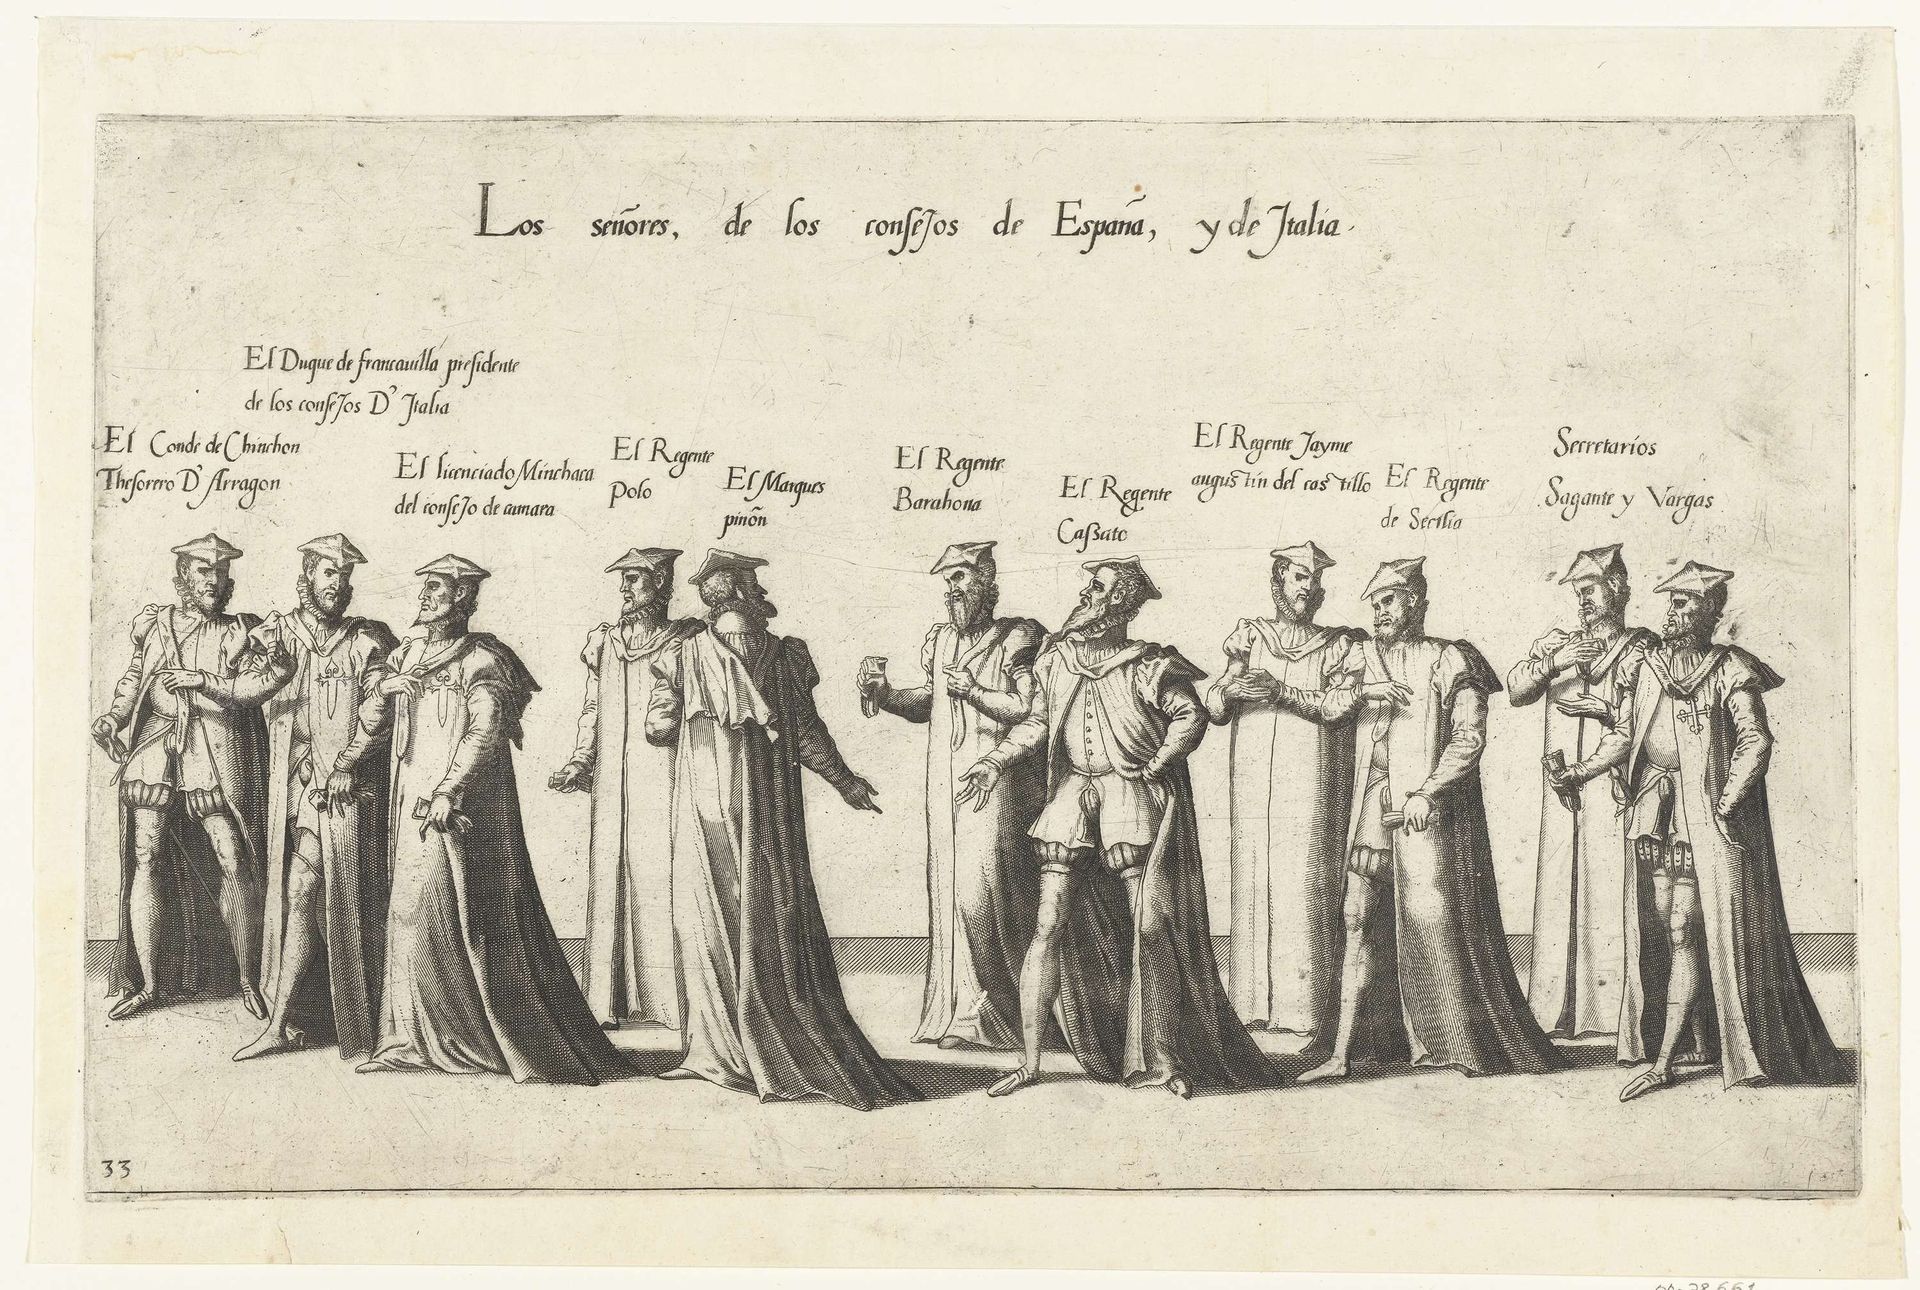 Los señores, de los consejos de España, y de Italia.
El Duque de francauilla presidente
de los consejos D' Italia
El Conde de Chinchon
Thesorero D' Arragon
El licenciado Minchaca
del consejo de camara
El Regente
Polo
El Marques
piñon
El Regente
Barahona
El Regente
Cassato
El Regente Jayme
augustin del castillo
El Regente
de Secilia
Secretarios
Sagante y Vargas
33